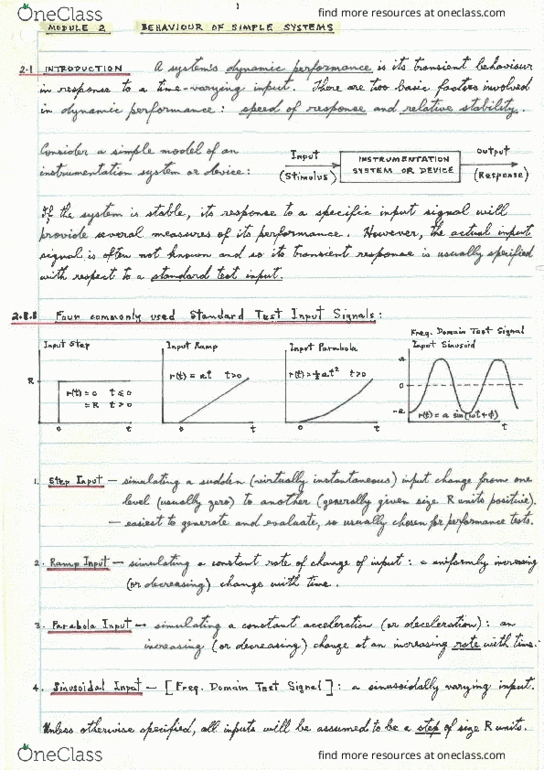 OneClass
find more resources at oneclass.com
1
MODULE 2 BEHAVIOUR OF SIMPLE SYSTEMS
2.1 INTRODUCTION A system's dynamic performance is its transient behaviour
in response to a time-varying input. There are two basic factors involved
in dynamic performance: speed of response and relative stability.
Consider a simple model of an
instrumentation system or device:
Input
(Stimulus)
INSTRUMENTATION
SYSTEM OR DEVICE
Output
(Response)
If the system is stable, its response to a specific input signal will
provide several measures of its performance. However, the actual input
signal is often not known and so its transient response is usually specified
with respect to a standard test input.
Four commonly used Standard Test Input Signals:
Input Step
R
r(t)=0 t≤0
=R t>0
0 t
Input Ramp
r(t) = at t>0
0 t
Input Parabola
r(t)=½at² t>0
0 t
Freq. Domain Test Signal
Input Sinusoid
a
0
-a
r(t)=a sin(ωt+φ)
t
1. Step Input — simulating a sudden (virtually instantaneous) input change from one
level (usually zero) to another (generally given size R units positive).
— easiest to generate and evaluate, so usually chosen for performance tests.
2. Ramp Input — simulating a constant rate of change of input: a uniformly increasing
(or decreasing) change with time.
3. Parabola Input — simulating a constant acceleration (or deceleration): an
increasing (or decreasing) change at an increasing rate with time.
4. Sinusoidal Input — [Freq. Domain Test Signal]: a sinusoidally varying input.
Unless otherwise specified, all inputs will be assumed to be a step of size R units.
OneClass
find more resources at oneclass.com